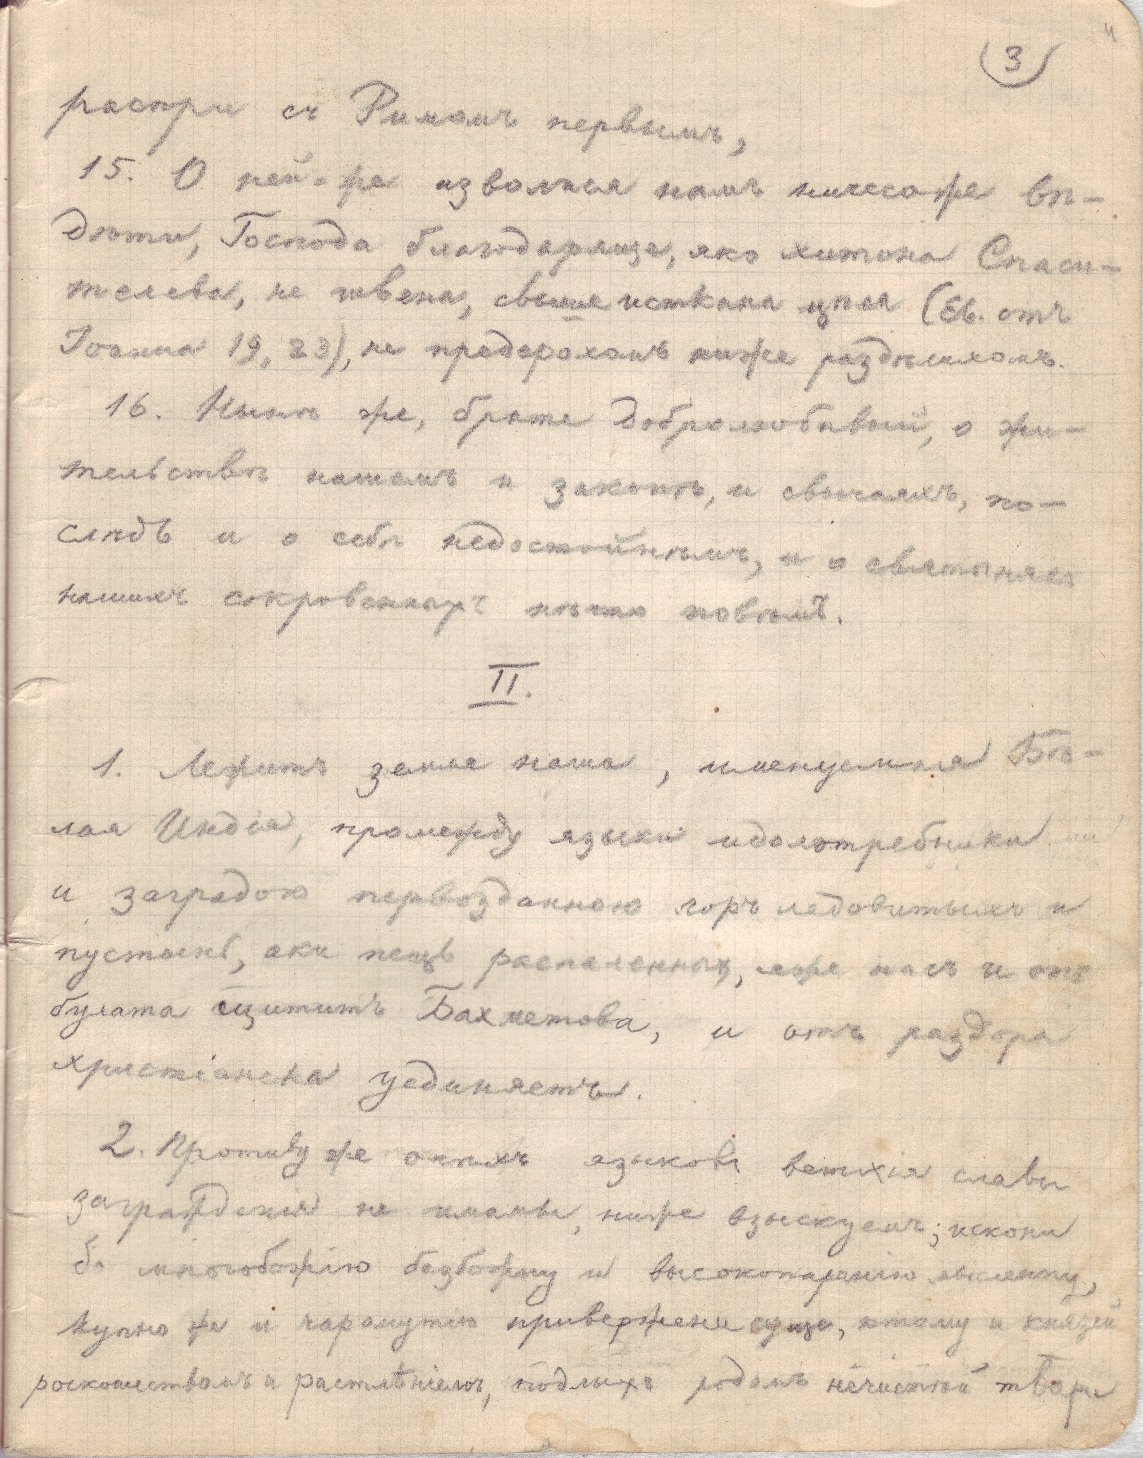 3
распри съ Римомъ первымъ,
15. О ней-же изволися намъ ничесоже вѣ-
дѣти, Господа благодаряще, яко хитона Спаси-
телева, не швена, свыше исткана цѣла (Ев. отъ
Іоанна 19, 23), не предрахомъ ниже раздѣлихомъ.
16. Нынѣ же, брате добролюбивый, о жи-
тельствѣ нашемъ и законѣ, и свычаяхъ, по-
слѣдъ и о себѣ недостойнѣмъ, и о святыняхъ
нашихъ сокровенныхъ нѣчто повѣмъ.
II.
1. Лежитъ земля наша, именуемая Бѣ-
лая Индія, промежду языки идолотребники
и заградою первозданною горъ ледовитыхъ и
пустынь, аки пещь распаленныхъ, яже насъ и отъ
булата щититъ Бахметова, и отъ раздора
христіанска уединяетъ.
2. Противу же онѣхъ языковъ ветхія славы
загражденія не имамы, ниже взыскуемъ; искони
бо многобожію безбожну и высокопаренію мысленну,
купно же и чаромутію привержени суще, ктому и князей
роскошествомъ и растлѣніемъ, подлыхъ родомъ нечистой твари